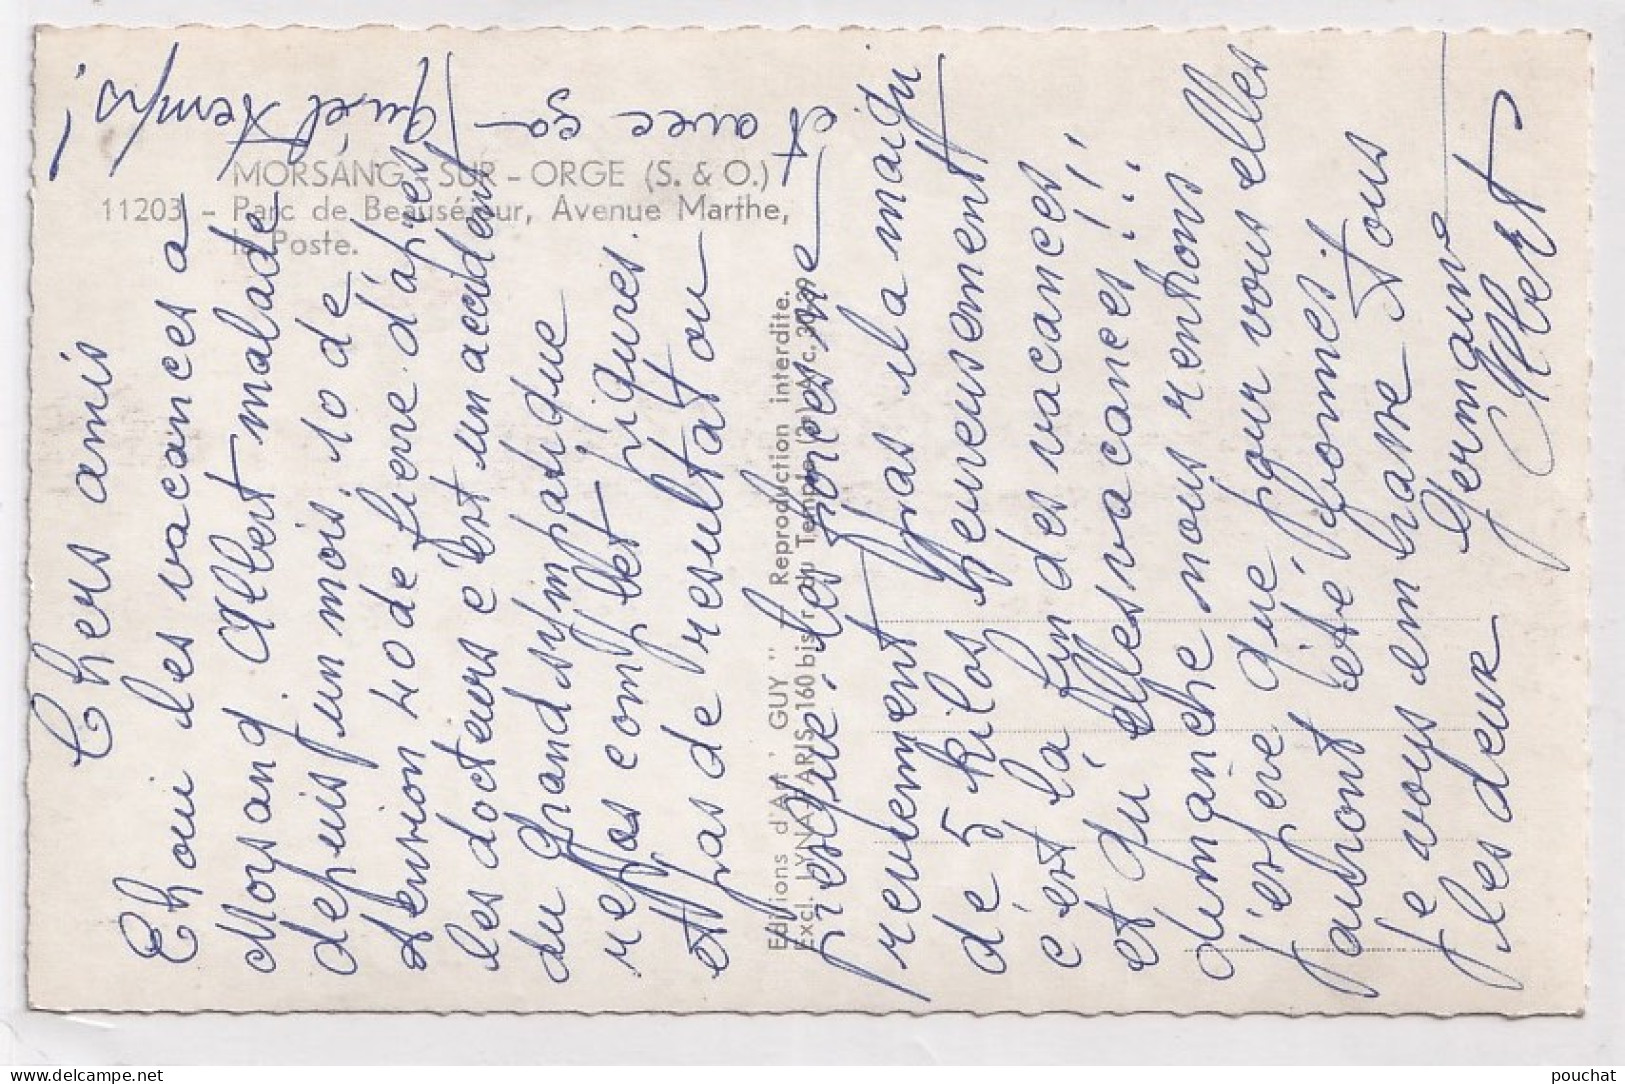 MORSANG - SUR - ORGE (S. & O.)
11203 - Parc de Beauséjour, Avenue Marthe,
la Poste.
Editions d'Art " GUY " — Reproduction interdite.
Excl. LYNA PARIS, 160 bis, r. du Temple (3e) Arc. 30
Chers amis
Choui les vacances a
Morsang. Albert malade
depuis un mois. 10 de
tension 40 de fièvre d'après
les docteurs c'est un accident
du grand sympatique
repos complet piqures.
et pas de resultat ou
presque. les forces ne
reviennent pas il a maigri
de 5 kilos heureusement
c'est la fin des vacances
et qu'elles vacances !!!
dimanche nous rentrons
j'espère que pour vous elles
auront été bonnes.
Je vous embrasse tous
les deux Germaine
Albert
et avec ça
quel temps !
pouchat